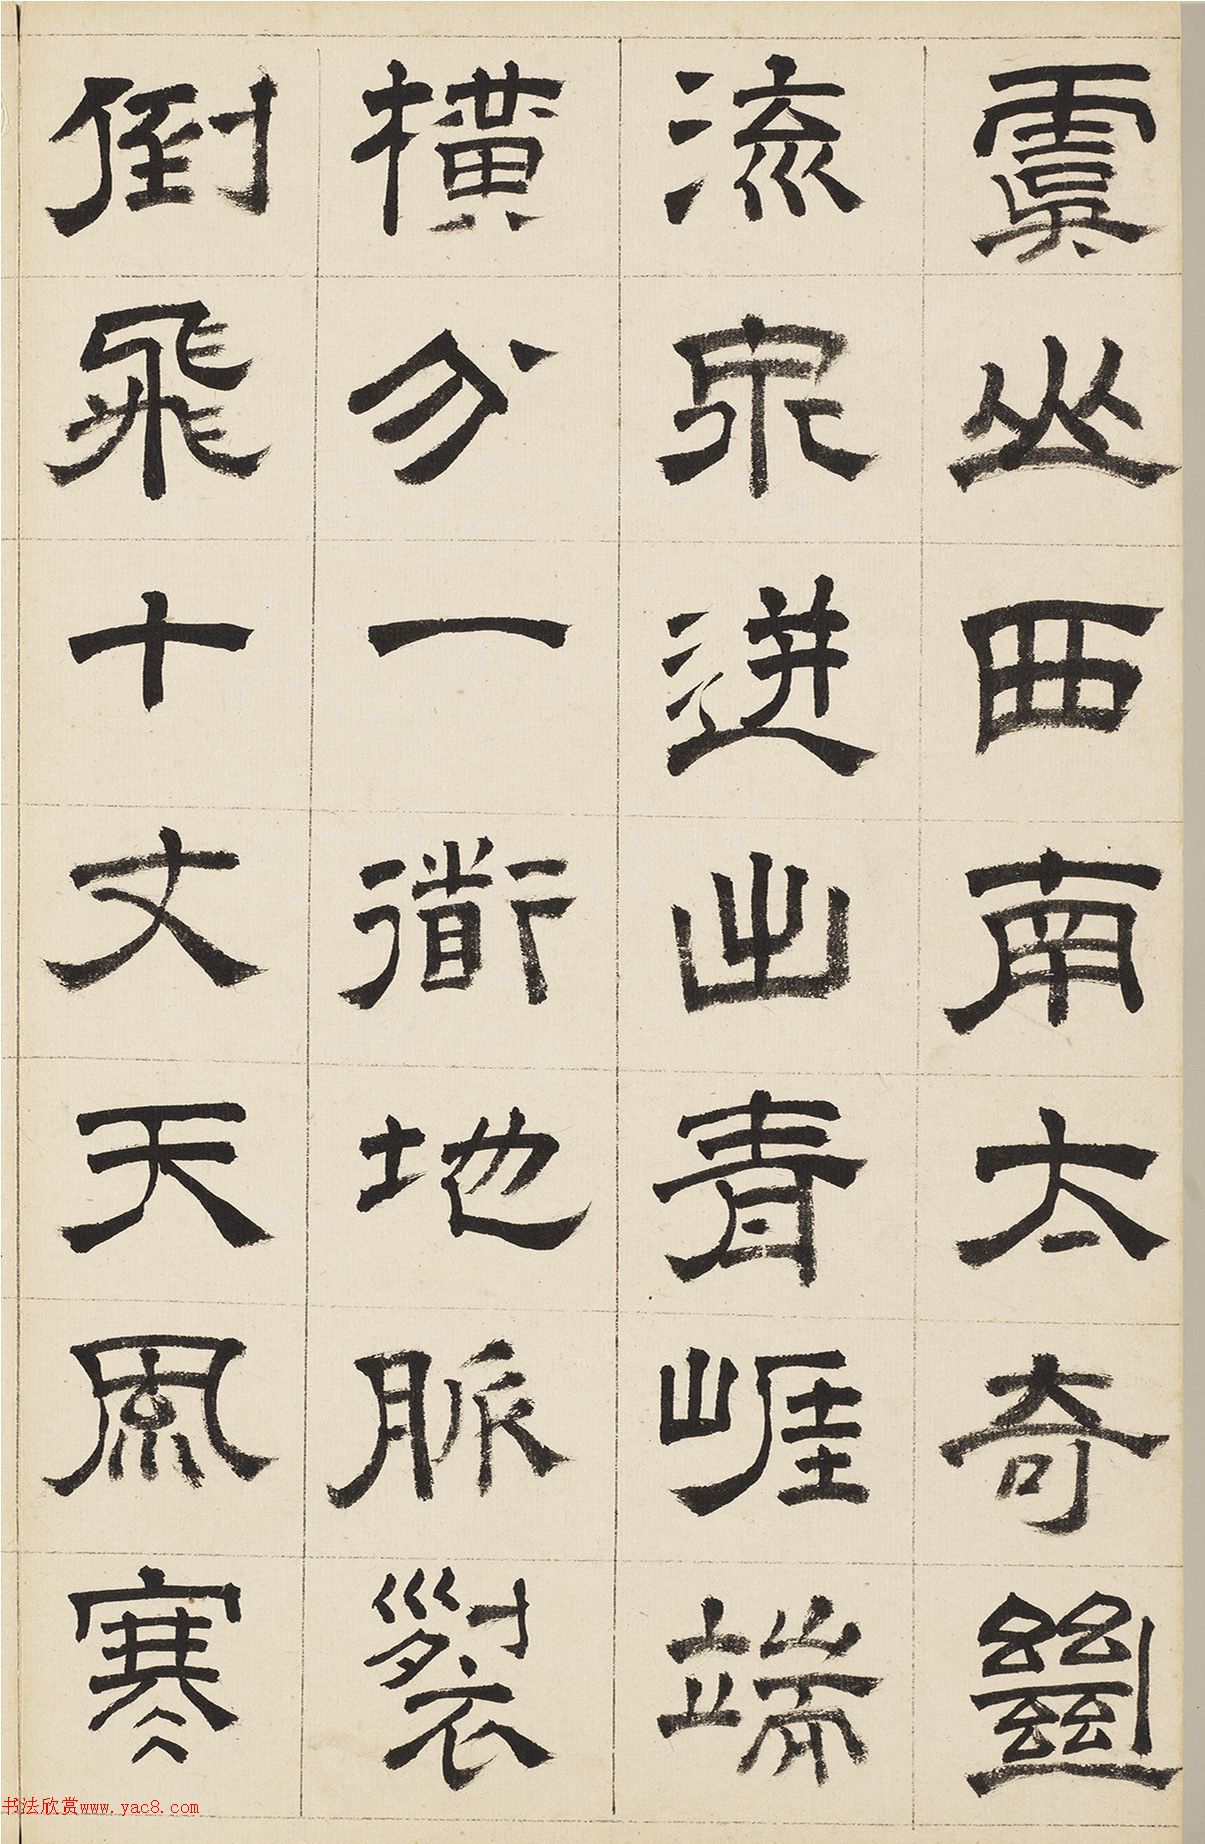 虞山西南太奇絶
流泉迸出青崖端
横分一衜地脈裂
倒飛十丈天風寒
书法欣赏www.yac8.com